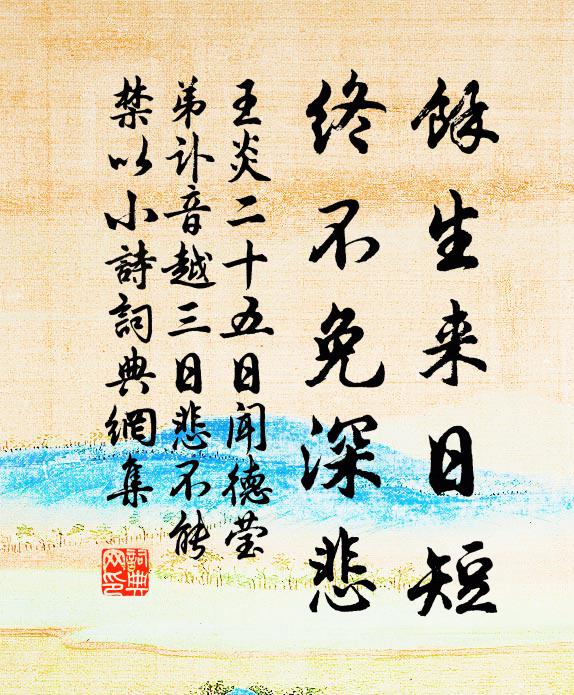 餘生来日短
終不免深悲
王炎二十五日聞德瑩
弟訃音越三日悲不能
禁以小詩詞典網集
詞典网印